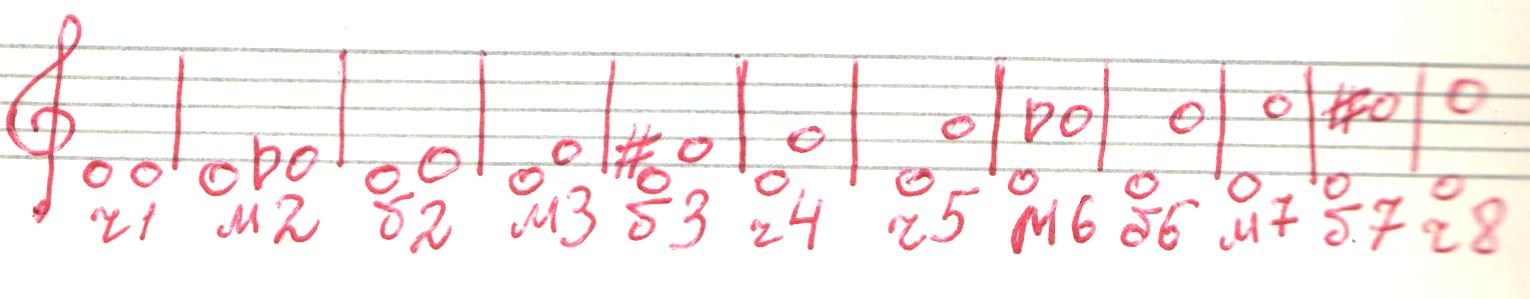 ч1 м2 б2 м3 б3 ч4 ч5 м6 б6 м7 б7 ч8